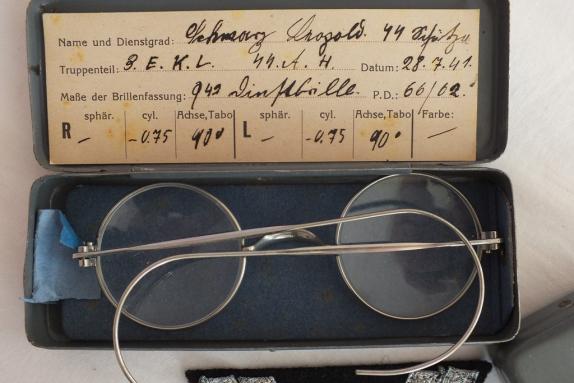 Name und Dienstgrad: Schwarz Leopold. 44 Schütze
Truppenteil: 3. E. K. L. 44. A. H. Datum: 28.7.41.
Maße der Brillenfassung: 942 Dinstbrille. P.D.: 66/62.
sphär. cyl. Achse,Tabo sphär. cyl. Achse,Tabo Farbe:
R – -0.75 90° L – -0.75 90° –